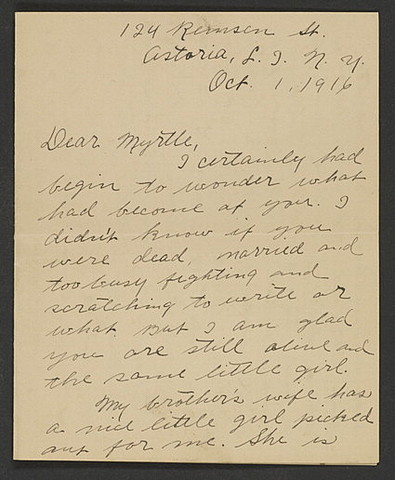 124 Remsen St.
Astoria, L. I. N. Y.
Oct. 1, 1916
Dear Myrtle,
I certainly had
begin to wonder what
had become of you. I
didn't know if you
were dead, married and
too busy fighting and
scratching to write or
what. But I am glad
you are still alive and
the same little girl.
My brother's wife has
a nice little girl picked
out for me. She is